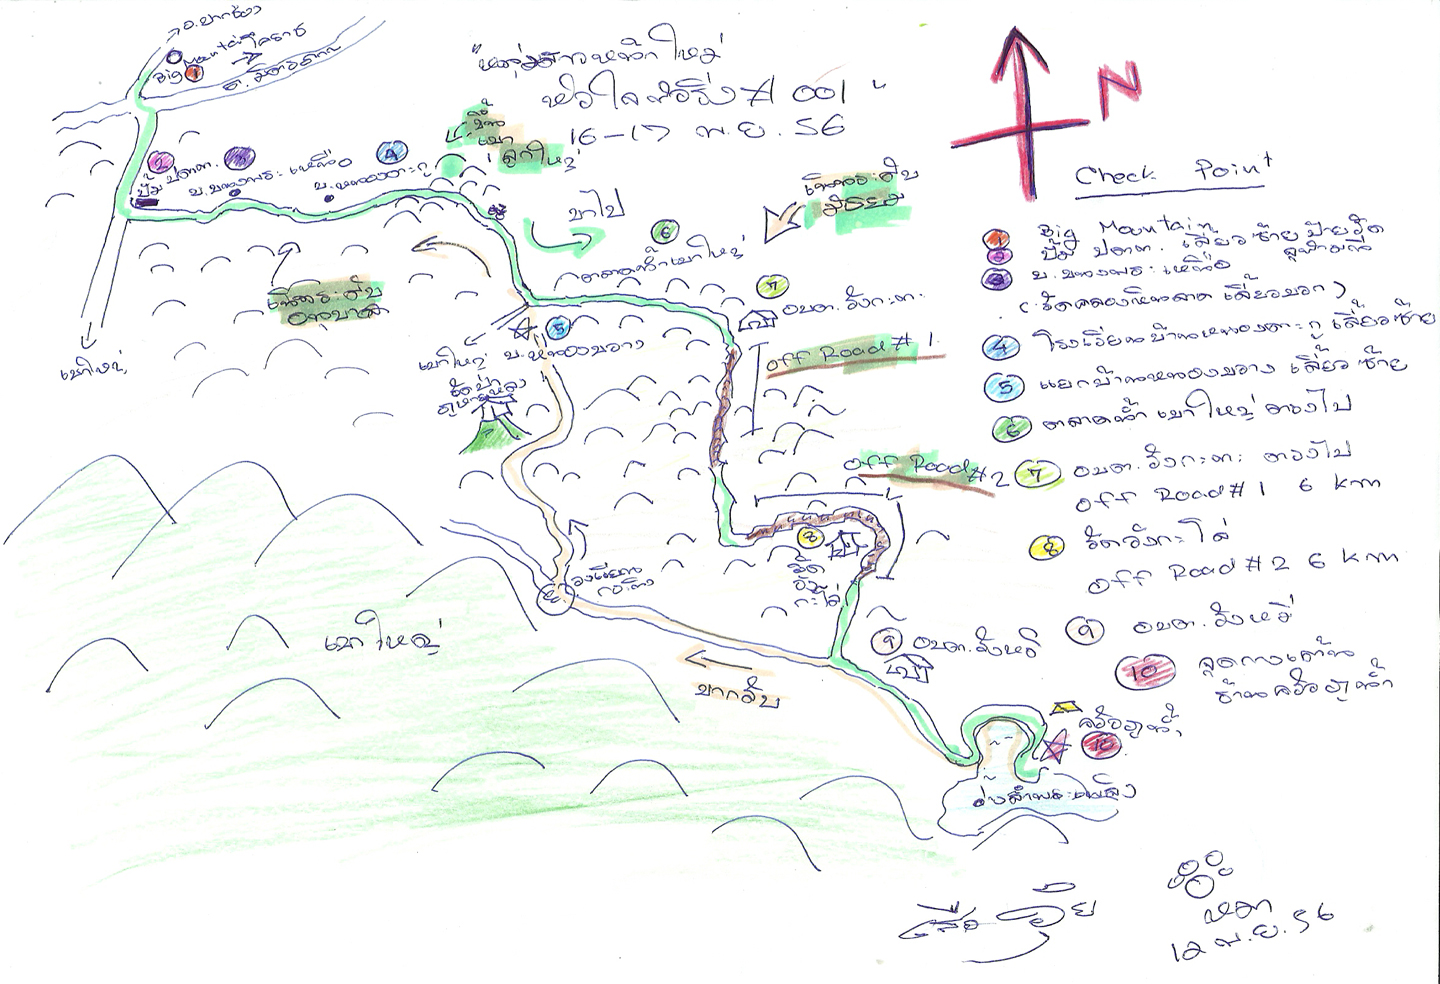 อ.ปากช่อง
Big Mountain
1
โคราช
ถ.มิตรภาพ
"หนุ่มสาวหน้าใหม่
หัวใจ
# 001"
16-17 พ.ย. 56
N
Check Point
1 Big Mountain
2 ปั๊ม ปตท. เลี้ยวซ้าย
3 บ.ขนงพระเหนือ
เลี้ยวขวา)
4 โรงเรียนบ้านหนองตะกู เลี้ยวซ้าย
5 แยกบ้านหนองขวาง เลี้ยวซ้าย
6 ตลาดน้ำเขาใหญ่ ตรงไป
7 อบต.วังกะทะ ตรงไป
Off Road #1 6 km
8 วัดวังกะโล่
Off Road #2 6 km
9 อบต.วังหมี
10 จุดกางเต้นท์
ร้านครัวภูน้ำ
2
ปั๊ม ปตท.
3
บ.ขนงพระเหนือ
4
บ.หนองตะกู
ขึ้น
เขา
ลูกใหญ่
ขาไป
6
ตลาดน้ำเขาใหญ่
เส้นทางระดับ
มัธยม
เส้นทางระดับ
อนุบาล
7
อบต.วังกะทะ
เขาใหญ่
เขาใหญ่
5
บ.หนองขวาง
วัดป่า
ภูหายหลง
Off Road #1
Off Road #2
8
วัด
วัง
กะโล่
วงเวียน
กระทิง
เขาใหญ่
9
อบต.วังหมี
ขากลับ
ครัวภูน้ำ
10
อ่างลำพระเพลิง
หมา
12 พ.ย. 56